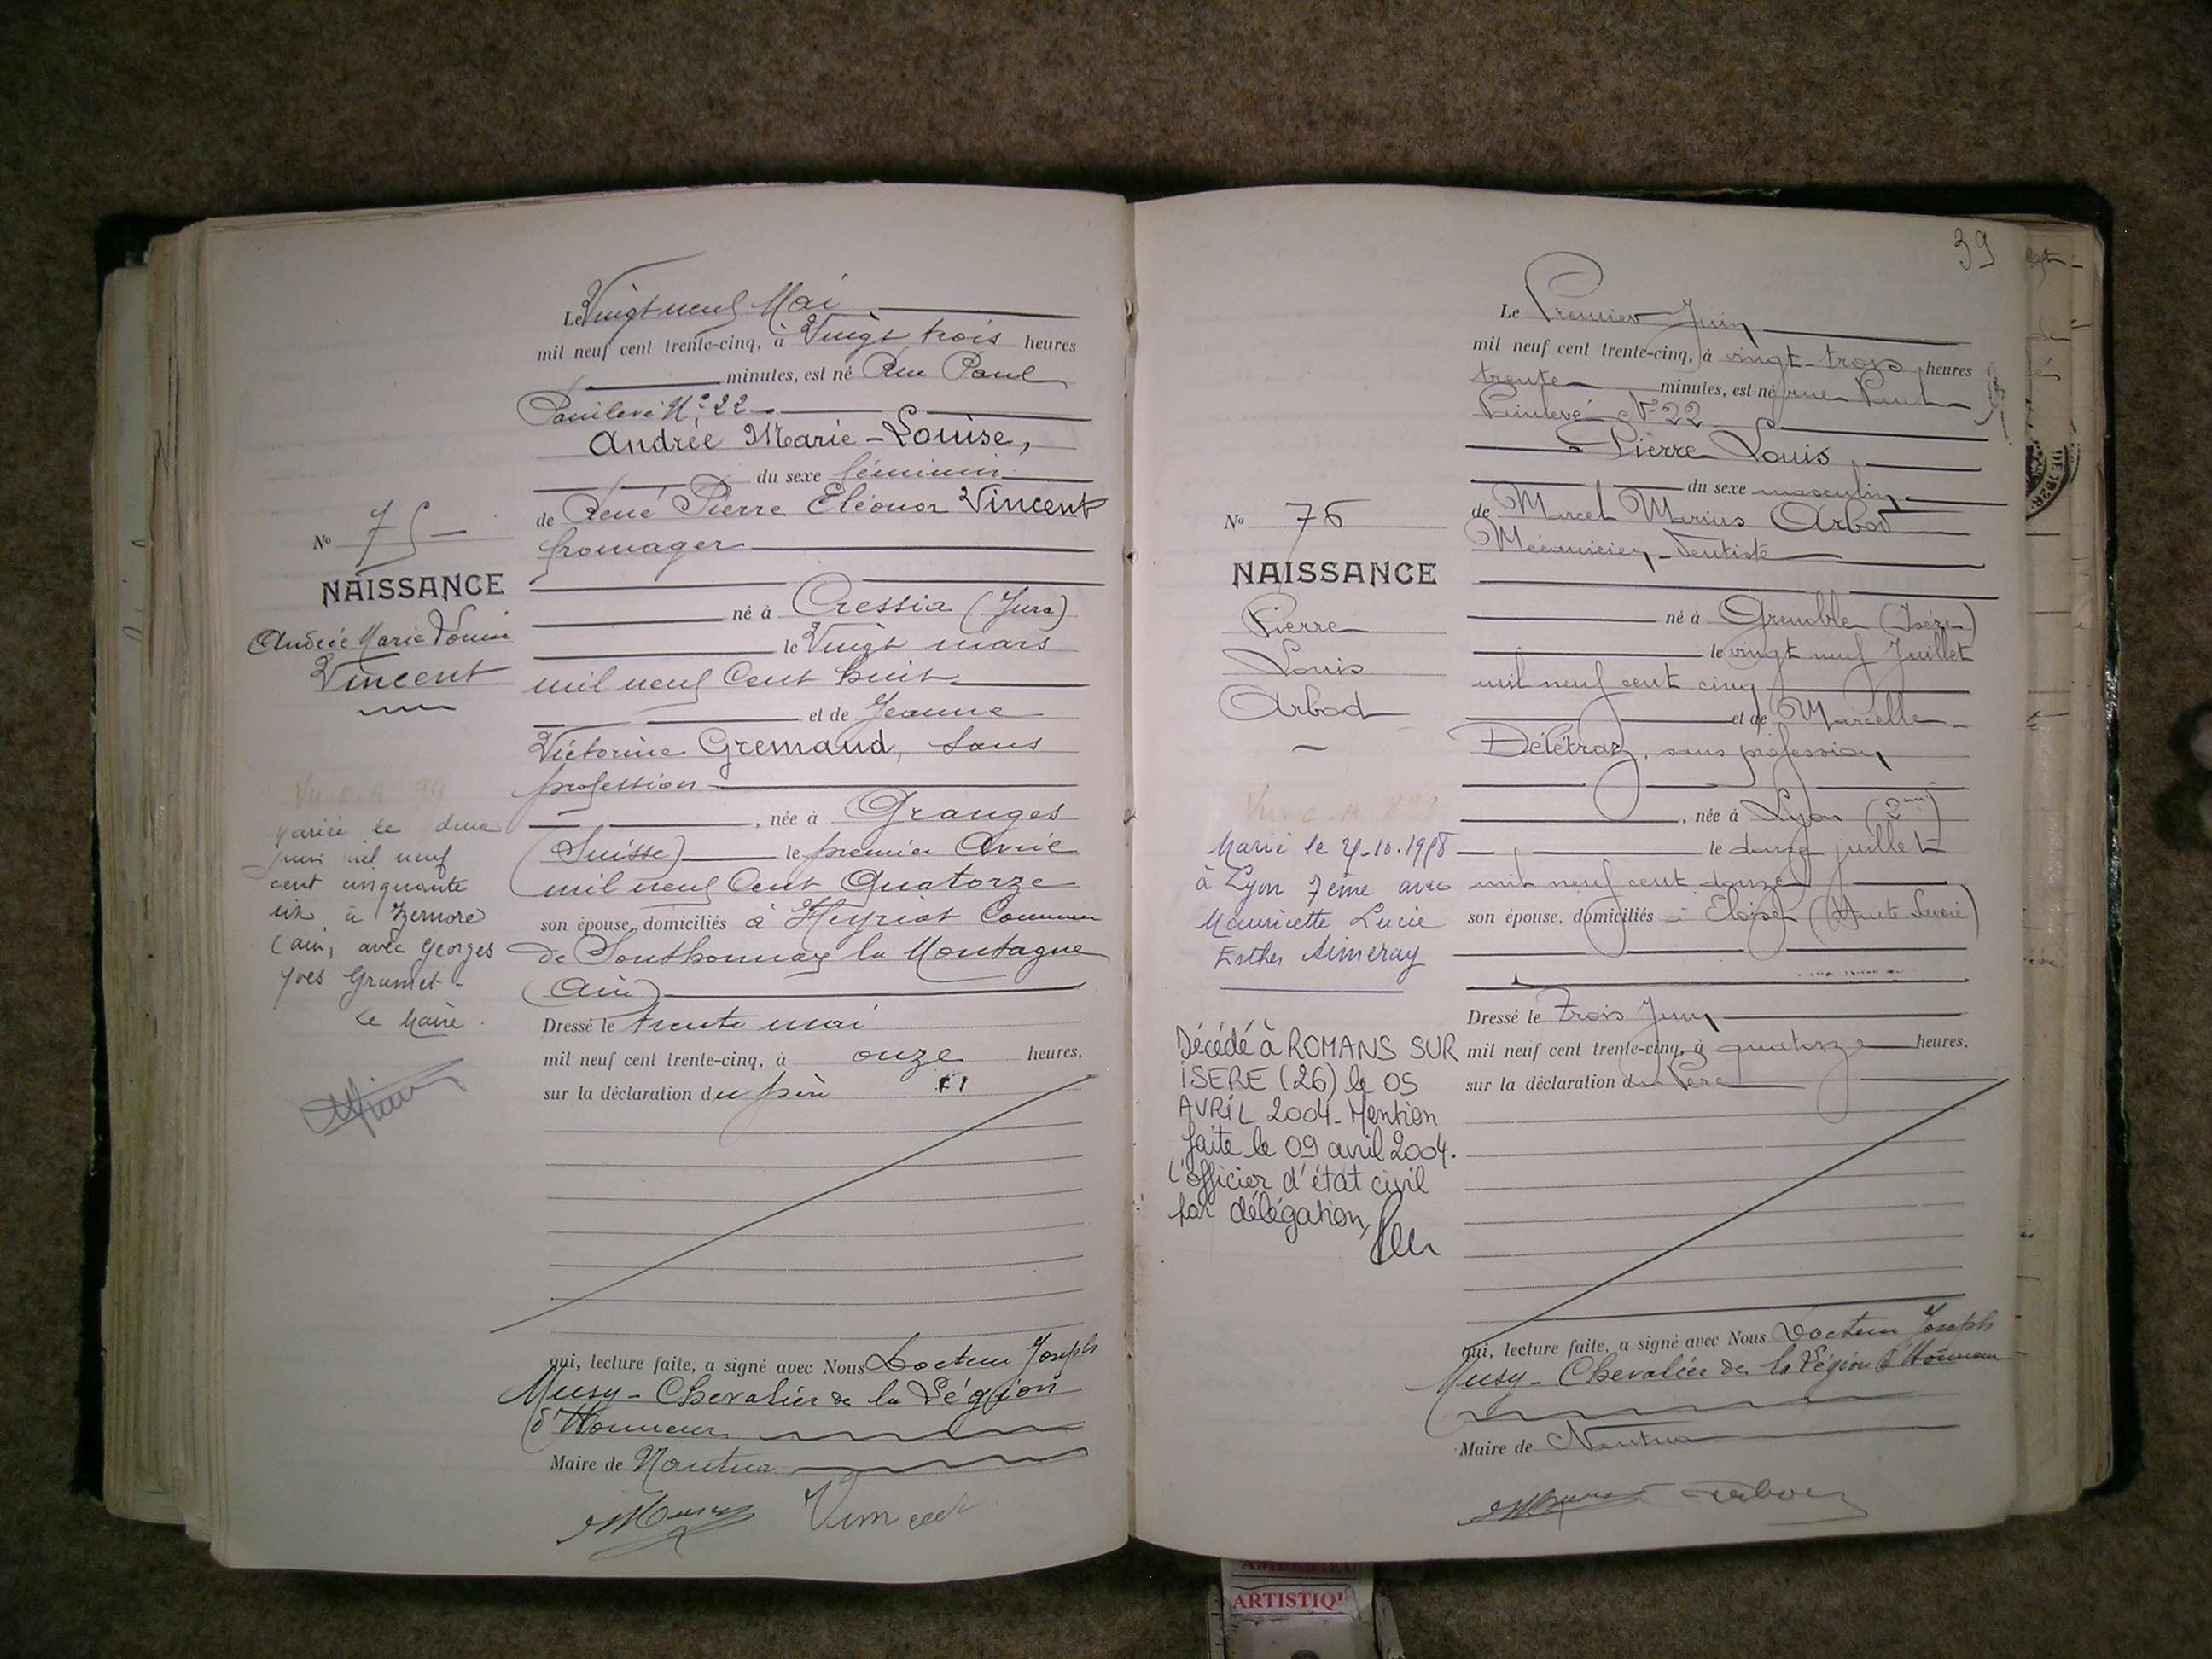 Le Vingt neuf Mai
mil neuf cent trente-cinq, à Vingt trois heures
minutes, est né Rue Paul
Painlevé N° 22
Andrée Marie-Louise,
du sexe féminin
de René Pierre Eléonor Vincent
fromager
né à Cressia (Jura)
le Vingt mars
mil neuf Cent huit
et de Jeanne
Victorine Gremaud, sans
profession
, née à Granges
(Suisse) le premier Avril
mil neuf Cent Quatorze
son épouse, domiciliés à Heyriat Commune
de Sonthonnax la Montagne
(Ain)
Dressé le trente mai
mil neuf cent trente-cinq, à onze heures,
sur la déclaration du père
qui, lecture faite, a signé avec Nous Docteur Joseph
Musy - Chevalier de la Légion
d'Honneur
Maire de Nantua
Musy Vincent
N° 75
NAISSANCE
Andrée Marie Louise
Vincent
mariée le deux
juin mil neuf
cent cinquante
six à Izernore
(Ain) avec Georges
Yves Grumet
Le Maire.
39
Le Premier Juin
mil neuf cent trente-cinq, à vingt-trois heures
trente minutes, est né rue Paul
Painlevé N° 22
Pierre Louis,
du sexe masculin
de Marcel Marius Arbod
Mécanicien-Dentiste
né à Grenoble (Isère)
le vingt neuf Juillet
mil neuf cent cinq
et de Marcelle
Délétraz, sans profession
, née à Lyon (2me)
le douze juillet
mil neuf cent douze
son épouse, domiciliés à Eloise (Haute Savoie)
Dressé le Trois Juin
mil neuf cent trente-cinq, à quatorze heures,
sur la déclaration du Père
qui, lecture faite, a signé avec Nous Docteur Joseph
Musy - Chevalier de la Légion d'Honneur
Maire de Nantua
N° 76
NAISSANCE
Pierre
Louis
Arbod
Marié le
à Lyon 7ème avec
Mauricette Lucie
Esther Aimeray
Décédé à ROMANS SUR
ISERE (26) le 05
AVRIL 2004. Mention
faite le 09 avril 2004.
L'officier d'état civil
par délégation,
ARTISTIQ